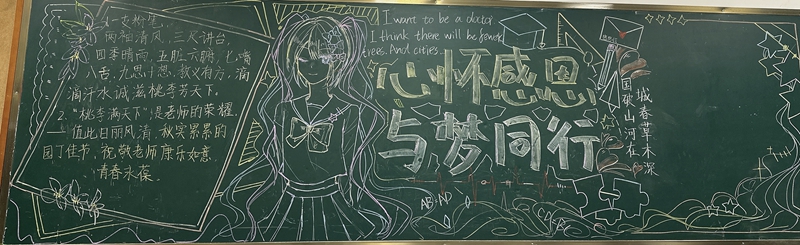 1.一支粉笔,
两袖清风,三尺讲台,
四季晴雨,五脏六腑,七嘴
八舌,九思十想,教义有方,滴
滴汗水诚滋桃李芳天下。
2."桃李满天下"是老师的荣耀
——值此日丽风清、秋实累累的
园丁佳节,祝敬老师康乐如意,
青春永葆。
I want to be a doctor
I think there will be fewer
trees. And cities
心怀感恩
与梦同行
国破山河在
城春草木深